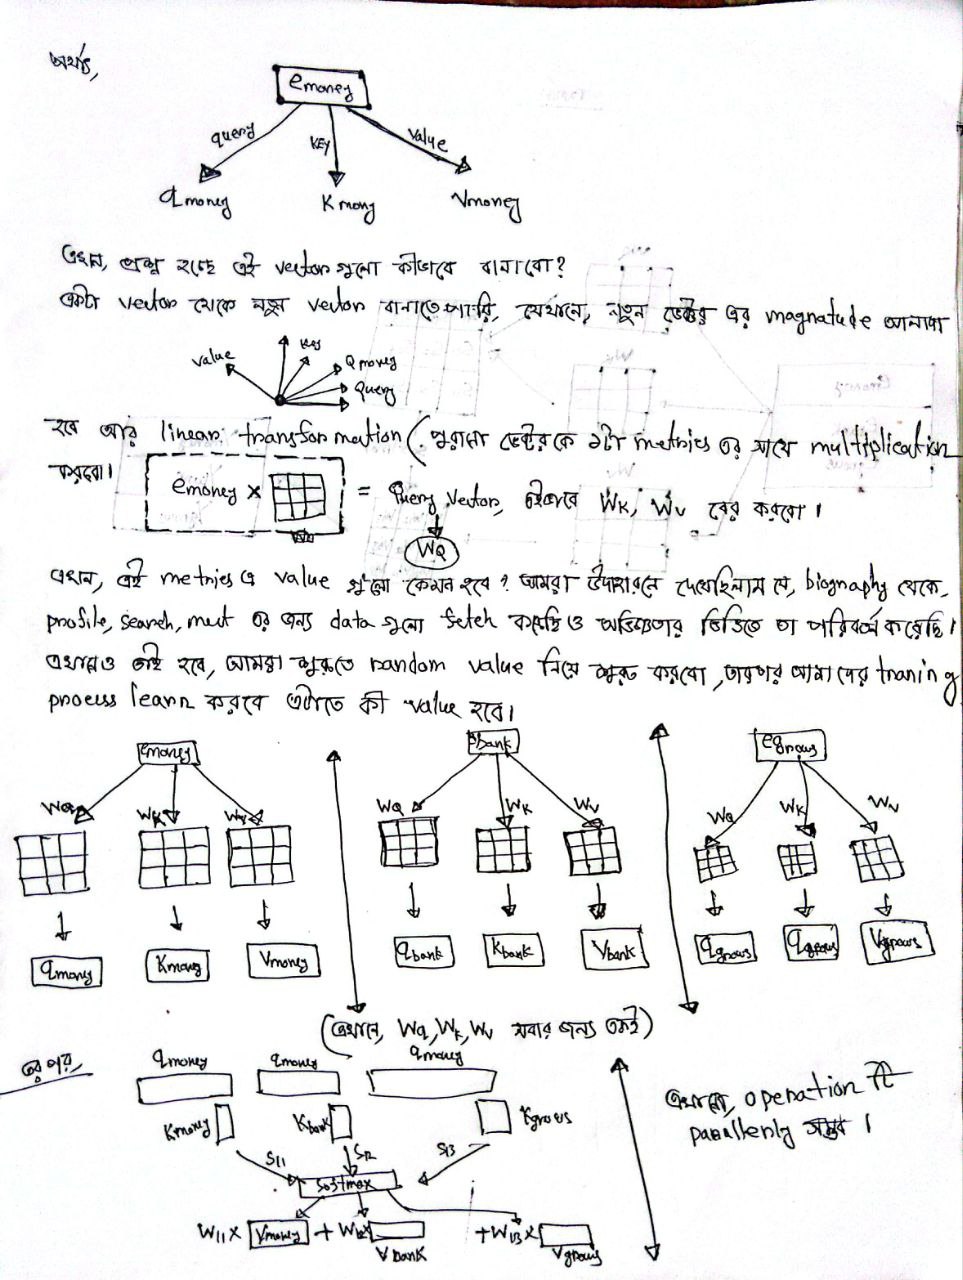 অর্থাৎ,
emoney
query KEY value
qmoney Kmony Vmoney
এখন, প্রশ্ন হচ্ছে এই vector গুলো কীভাবে বানাবো?
একটা vector থেকে নতুন vector বানাতে পারি, যেখানে, নতুন ভেক্টর এর magnatude আলাদা
value Key Qmoney
Query
হবে আর linear transformation (পুরানো ভেক্টরকে ১টা metrics এর সাথে multiplication
করবো।
emoney × = Query Vector, এইভাবে WK, WV বের করবো।
WQ
এখন, এই metrics এ value গুলো কেমন হবে? আমরা উদাহারনে দেখেছিলাম যে, biography থেকে,
profile, search, met এর জন্য data গুলো fetch করেছি ও অভিজ্ঞতার ভিত্তিতে তা পরিবর্তন করেছি।
এখানেও তাই হবে, আমরা শুরুতে random value নিয়ে শুরু করবো, তারপর আমাদের traning
process learn করবে এটাতে কী value হবে।
emoney ebank egrows
WQ WK WV WQ WK WV WQ WK WV
qmoney Kmoney Vmoney qbank Kbank Vbank qgrows qgrows Vgrows
(এখানে, WQ, WK, WV সবার জন্য একই)
এরপর,
qmoney qmoney qmoney
এখানে, operation টি
parallerly সম্ভব।
Kmoney Kbank Kgrows
S11 S12 S13
Softmax
W11 × Vmoney + W12× Vbank + W13 × Vgrows